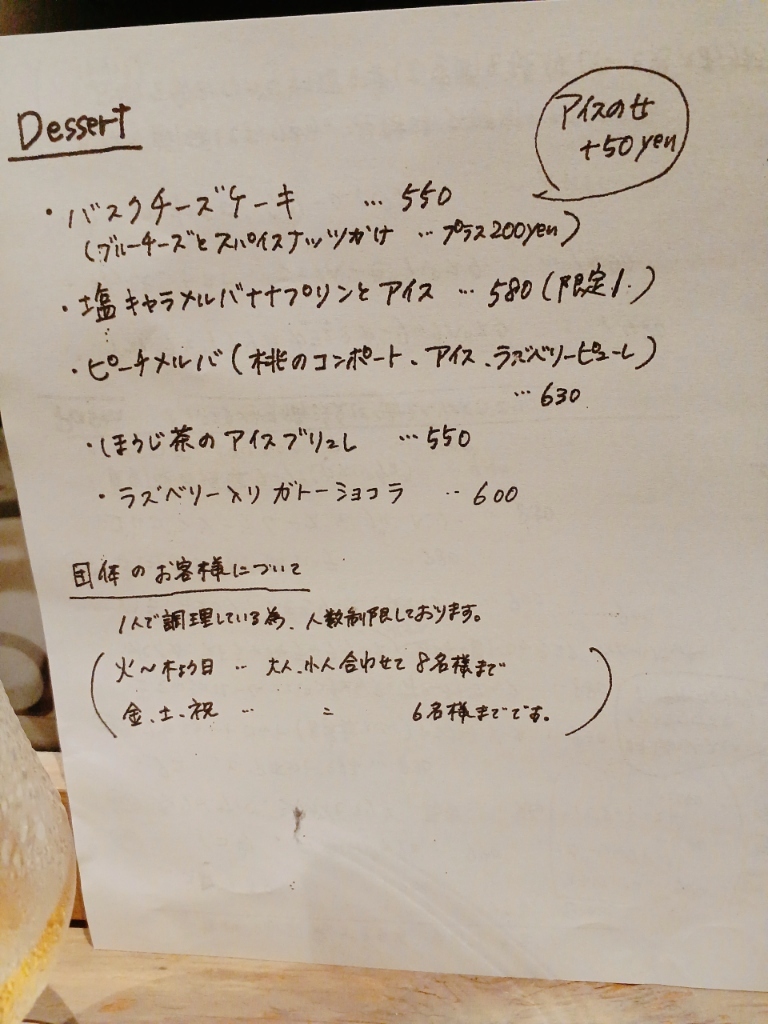 Dessert
アイスのせ
+50yen
・バスクチーズケーキ … 550
(ブルーチーズとスパイスナッツかけ … プラス200yen)
・塩キャラメルバナナプリンとアイス … 580 (限定1.)
・ピーチメルバ (桃のコンポート、アイス、ラズベリーピューレ)
… 630
・ほうじ茶のアイスブリュレ … 550
・ラズベリー入りガトーショコラ ‥ 600
団体のお客様について
1人で調理している為、人数制限しております。
火〜木 日 ‥ 大人、小人合わせて8名様まで
金、土、祝 ‥ 〃 6名様までです。